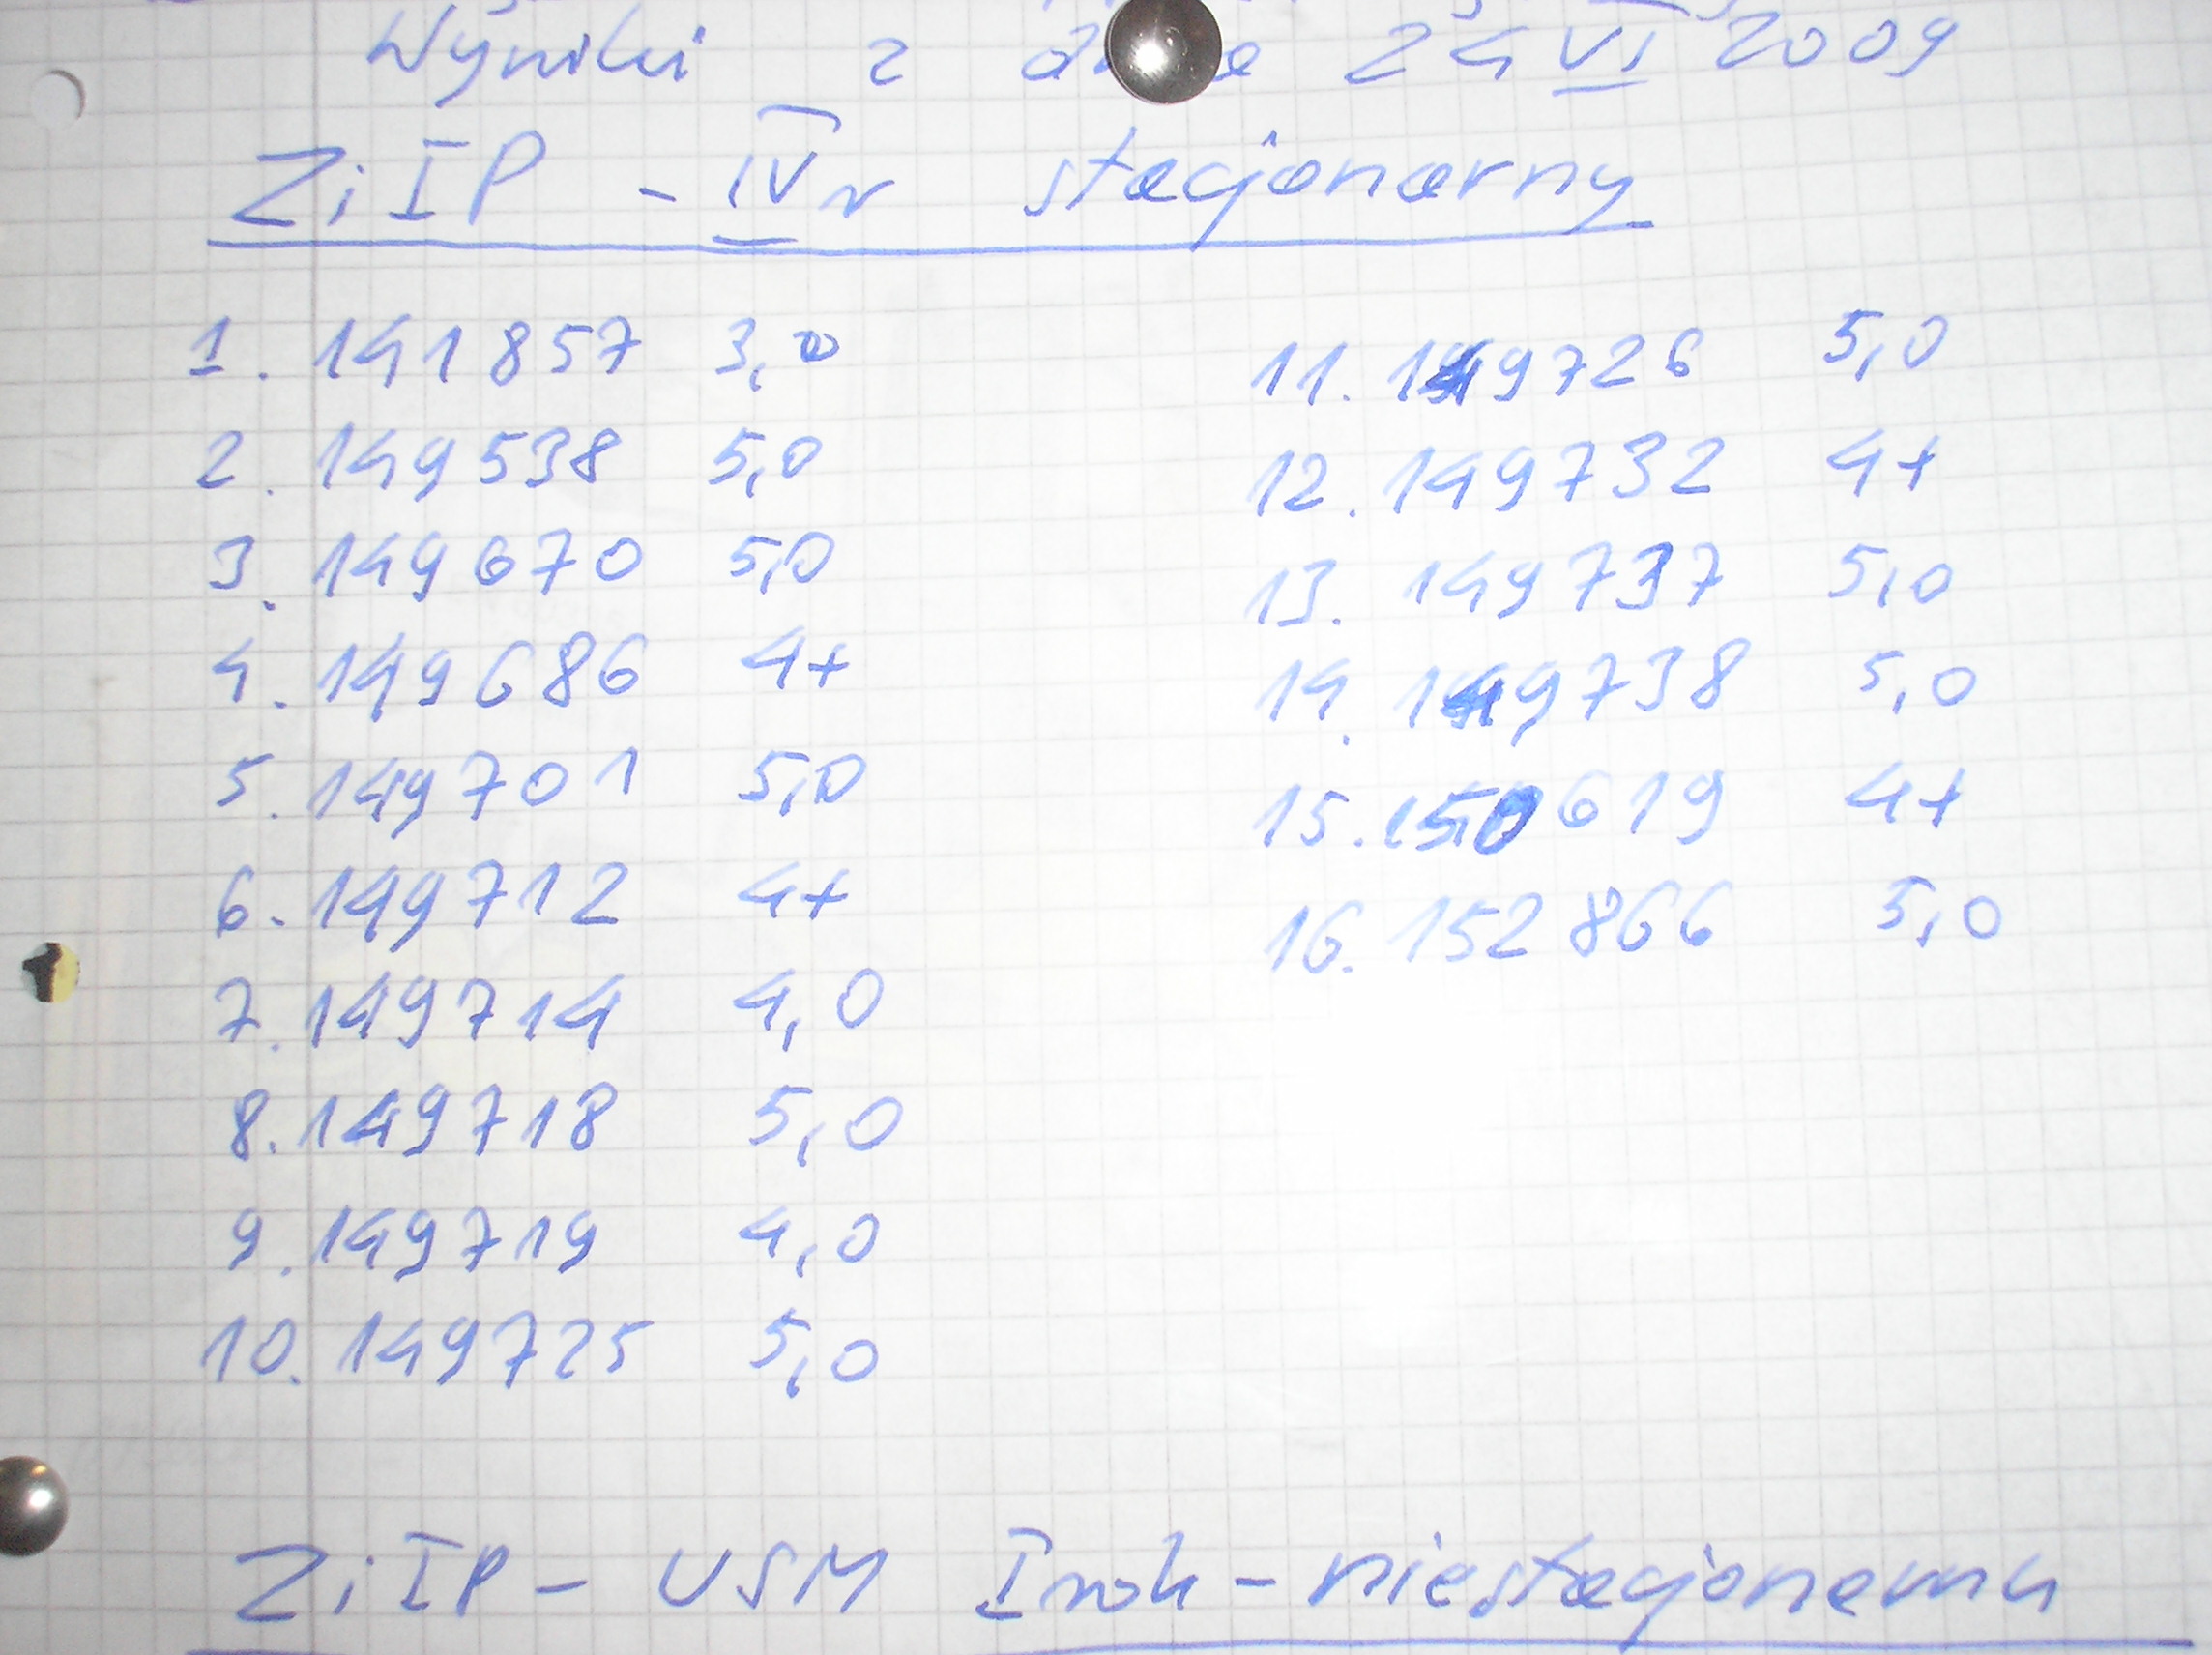 Wyniki z 24 VI 2009
ZiIP - IV r stacjonarny
1. 141857 3,0
2. 149538 5,0
3. 149670 5,0
4. 149686 4+
5. 149701 5,0
6. 149712 4+
7. 149714 4,0
8. 149718 5,0
9. 149719 4,0
10. 149725 5,0
11. 149726 5,0
12. 149732 4+
13. 149737 5,0
14. 149738 5,0
15. 150619 4+
16. 152866 5,0
ZiIP - USM I rok - niestacjonarny